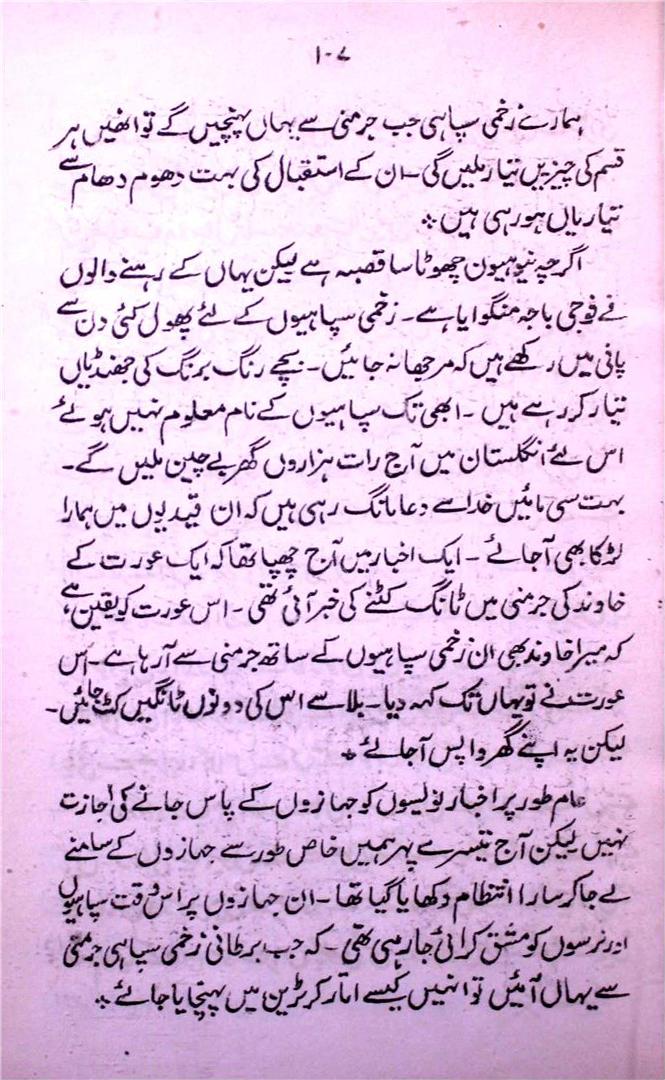 ۱۰۷
ہمارے زخمی سپاہی جب جرمنی سے یہاں پہنچیں گے تو انھیں ہر
قسم کی چیزیں تیار ملیں گی۔ ان کے استقبال کی بہت دھوم دھام سے
تیاریاں ہو رہی ہیں ٭
اگرچہ نیوہیون چھوٹا سا قصبہ ہے لیکن یہاں کے رہنے والوں
نے فوجی باجہ منگوایا ہے۔ زخمی سپاہیوں کے لئے پھول کئی دن سے
پانی میں رکھے ہیں کہ مرجھا نہ جائیں۔ بچے رنگ برنگ کی جھنڈیاں
تیار کر رہے ہیں۔ ابھی تک سپاہیوں کے نام معلوم نہیں ہوئے
اس لئے انگلستان میں آج رات ہزاروں گھر بے چین ملیں گے۔
بہت سی مائیں خدا سے دعا مانگ رہی ہیں کہ ان قیدیوں میں ہمارا
لڑکا بھی آ جائے۔ ایک اخبار میں آج چھپا تھا کہ ایک عورت کے
خاوند کی جرمنی میں ٹانگ کٹنے کی خبر آئی تھی۔ اس عورت کو یقین ہے
کہ میرا خاوند بھی ان زخمی سپاہیوں کے ساتھ جرمنی سے آ رہا ہے۔ اس
عورت نے تو یہاں تک کہہ دیا۔ بلا سے اس کی دونوں ٹانگیں کٹ جائیں۔
لیکن یہ اپنے گھر واپس آ جائے ٭
عام طور پر اخبار نویسوں کو جہازوں کے پاس جانے کی اجازت
نہیں لیکن آج تیسرے پہر ہمیں خاص طور سے جہازوں کے سامنے
لے جا کر سارا انتظام دکھایا گیا تھا۔ ان جہازوں پر اس وقت سپاہیوں
اور نرسوں کو مشق کرائی جا رہی تھی۔ کہ جب برطانی زخمی سپاہی جرمنی
سے یہاں آئیں تو انہیں کیسے اتار کر ٹرین میں پہنچایا جائے ٭